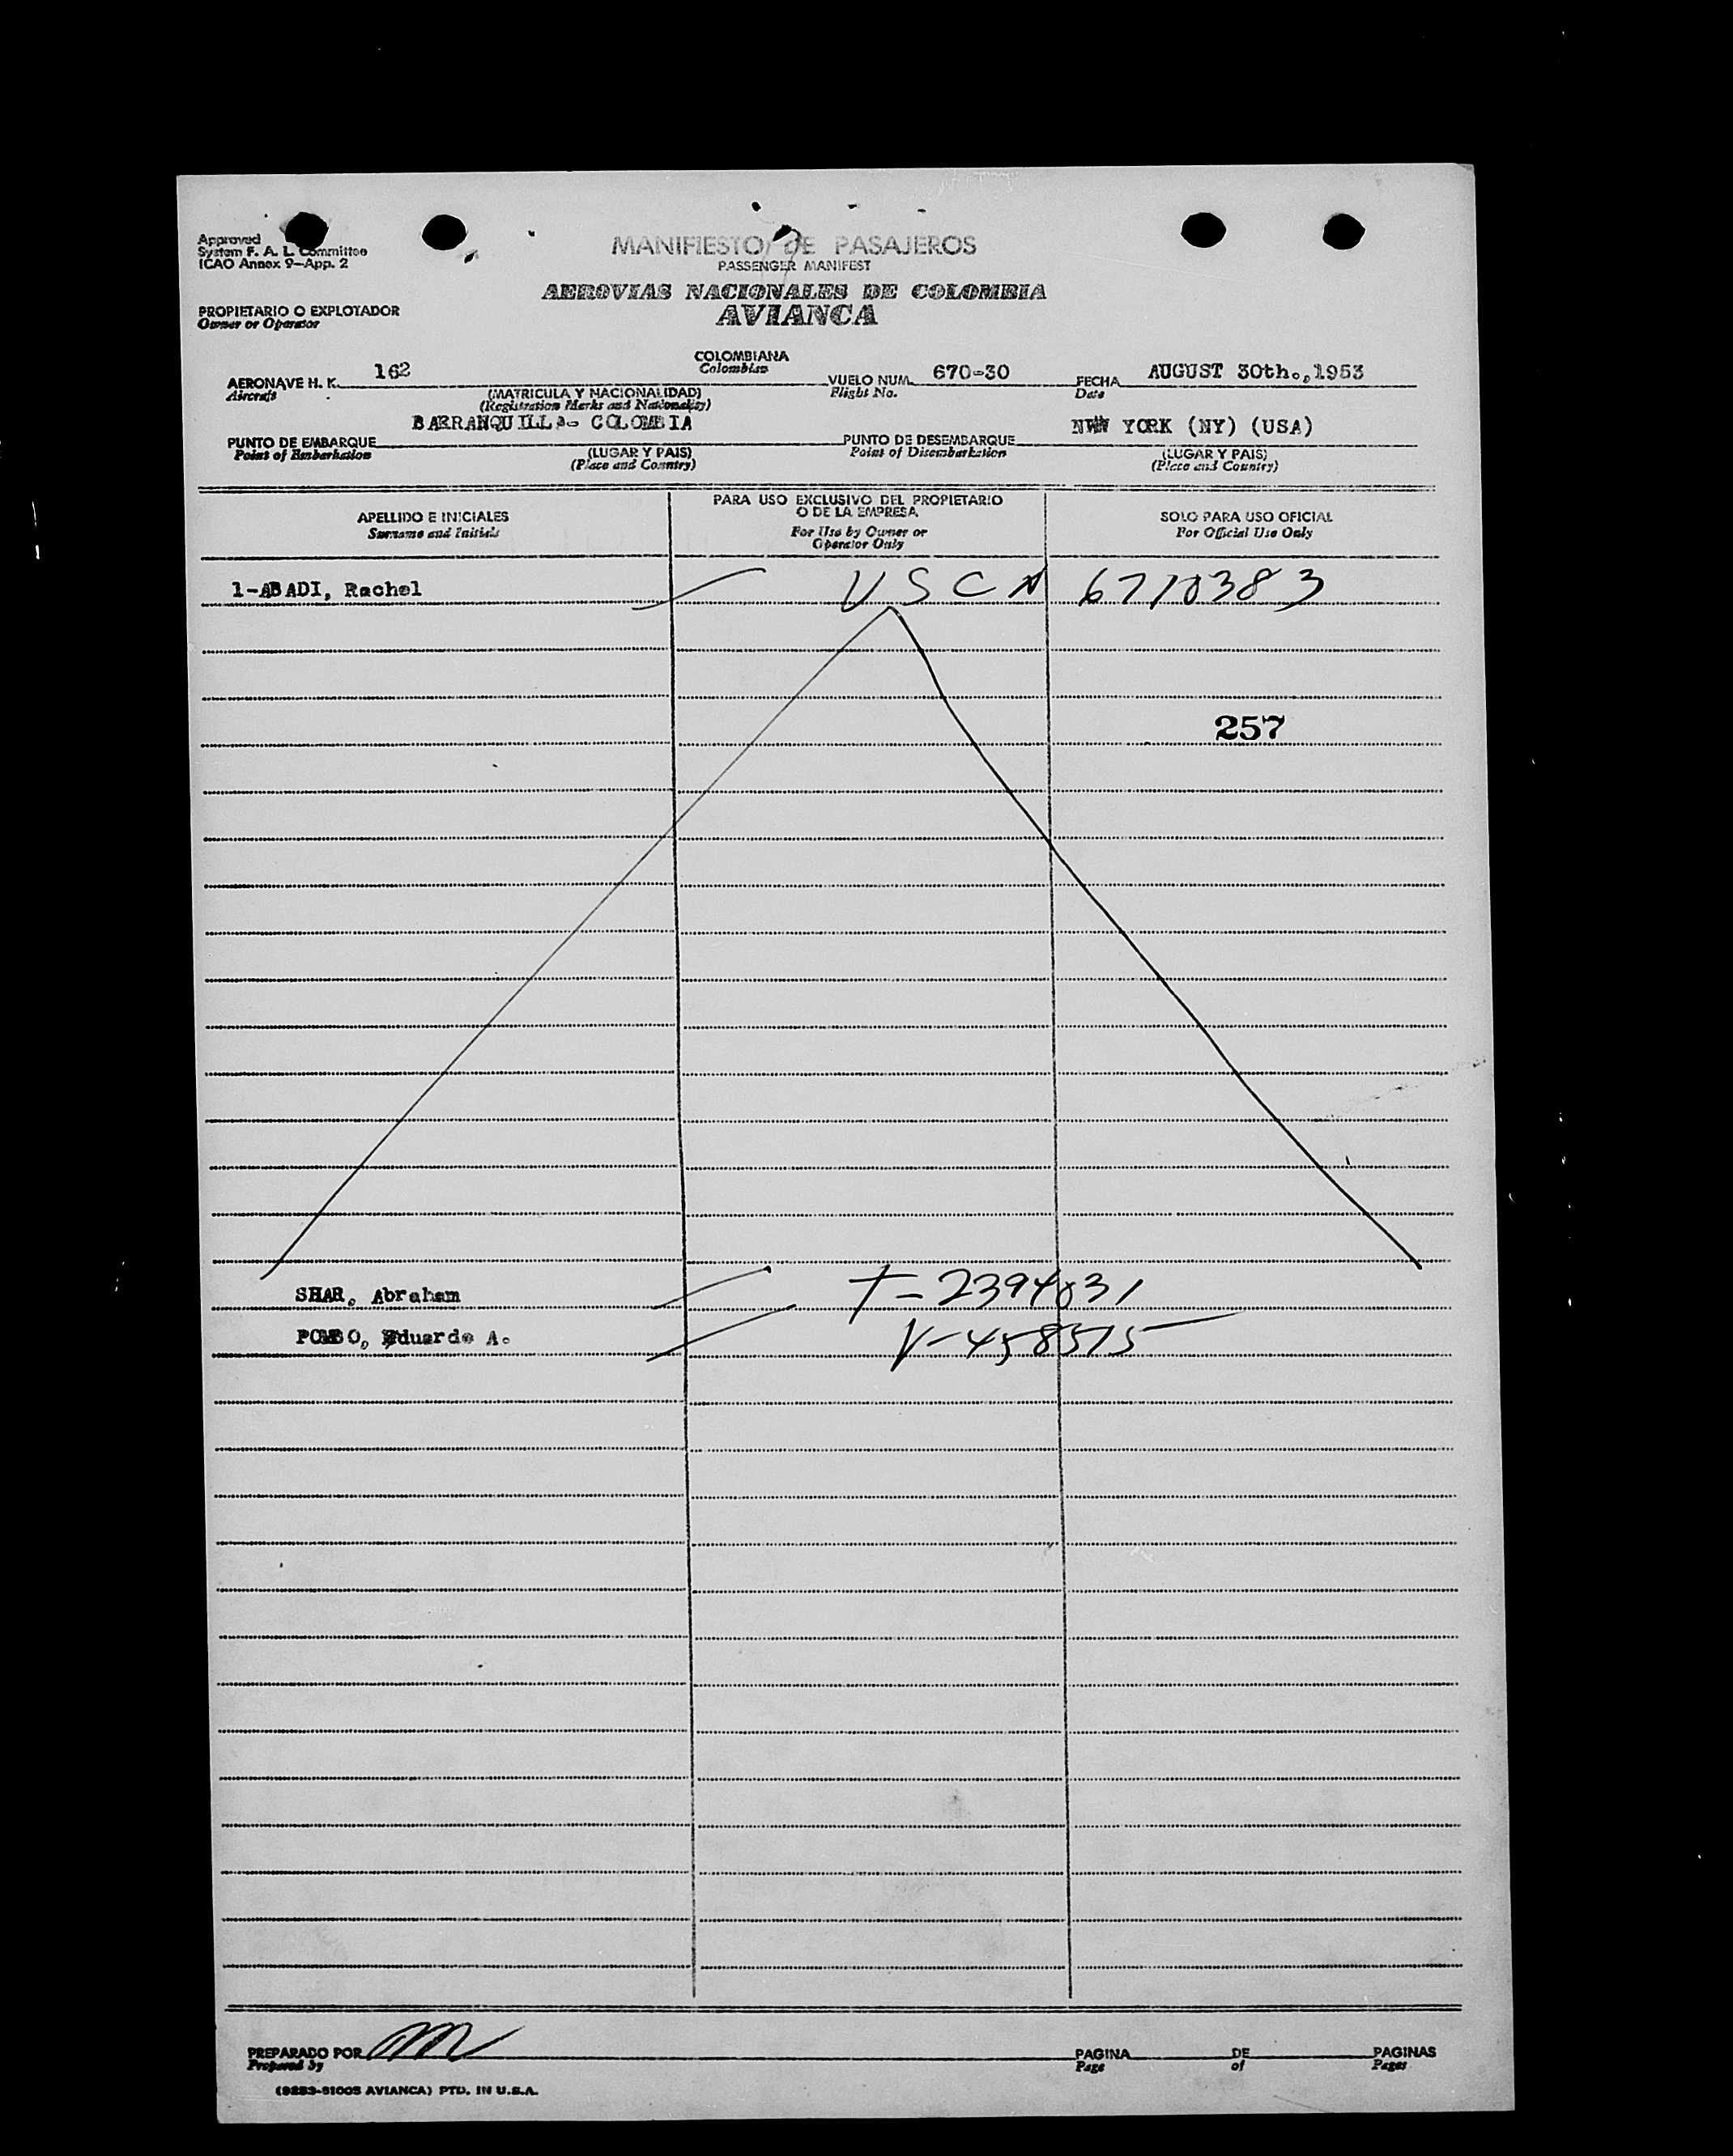 Approved
System F. A. L. Committee
ICAO Annex 9-App. 2
MANIFIESTO DE PASAJEROS
PASSENGER MANIFEST
AEROVIAS NACIONALES DE COLOMBIA
AVIANCA
PROPIETARIO O EXPLOTADOR
Owner or Operator
AERONAVE H. K. 162 COLOMBIANA VUELO NUM. 670-30 FECHA AUGUST 30th.,1953
Aircraft Colombian Flight No. Date
(MATRICULA Y NACIONALIDAD)
(Registration Marks and Nationality)
PUNTO DE EMBARQUE BARRANQUILLA- COLOMBIA PUNTO DE DESEMBARQUE NEW YORK (NY) (USA)
Point of Embarkation (LUGAR Y PAIS) Point of Disembarkation (LUGAR Y PAIS)
(Place and Country) (Place and Country)
APELLIDO E INICIALES PARA USO EXCLUSIVO DEL PROPIETARIO O DE LA EMPRESA SOLO PARA USO OFICIAL
Surname and Initials For Use by Owner or Operator Only For Official Use Only
1-ABADI, Rachel USC N 6710383
257
SHAR, Abraham T-2394031
POMBO, Eduardo A. V-458515
PREPARADO POR PAGINA DE PAGINAS
Prepared by Page of Pages
(9283-51005 AVIANCA) PTD. IN U.S.A.